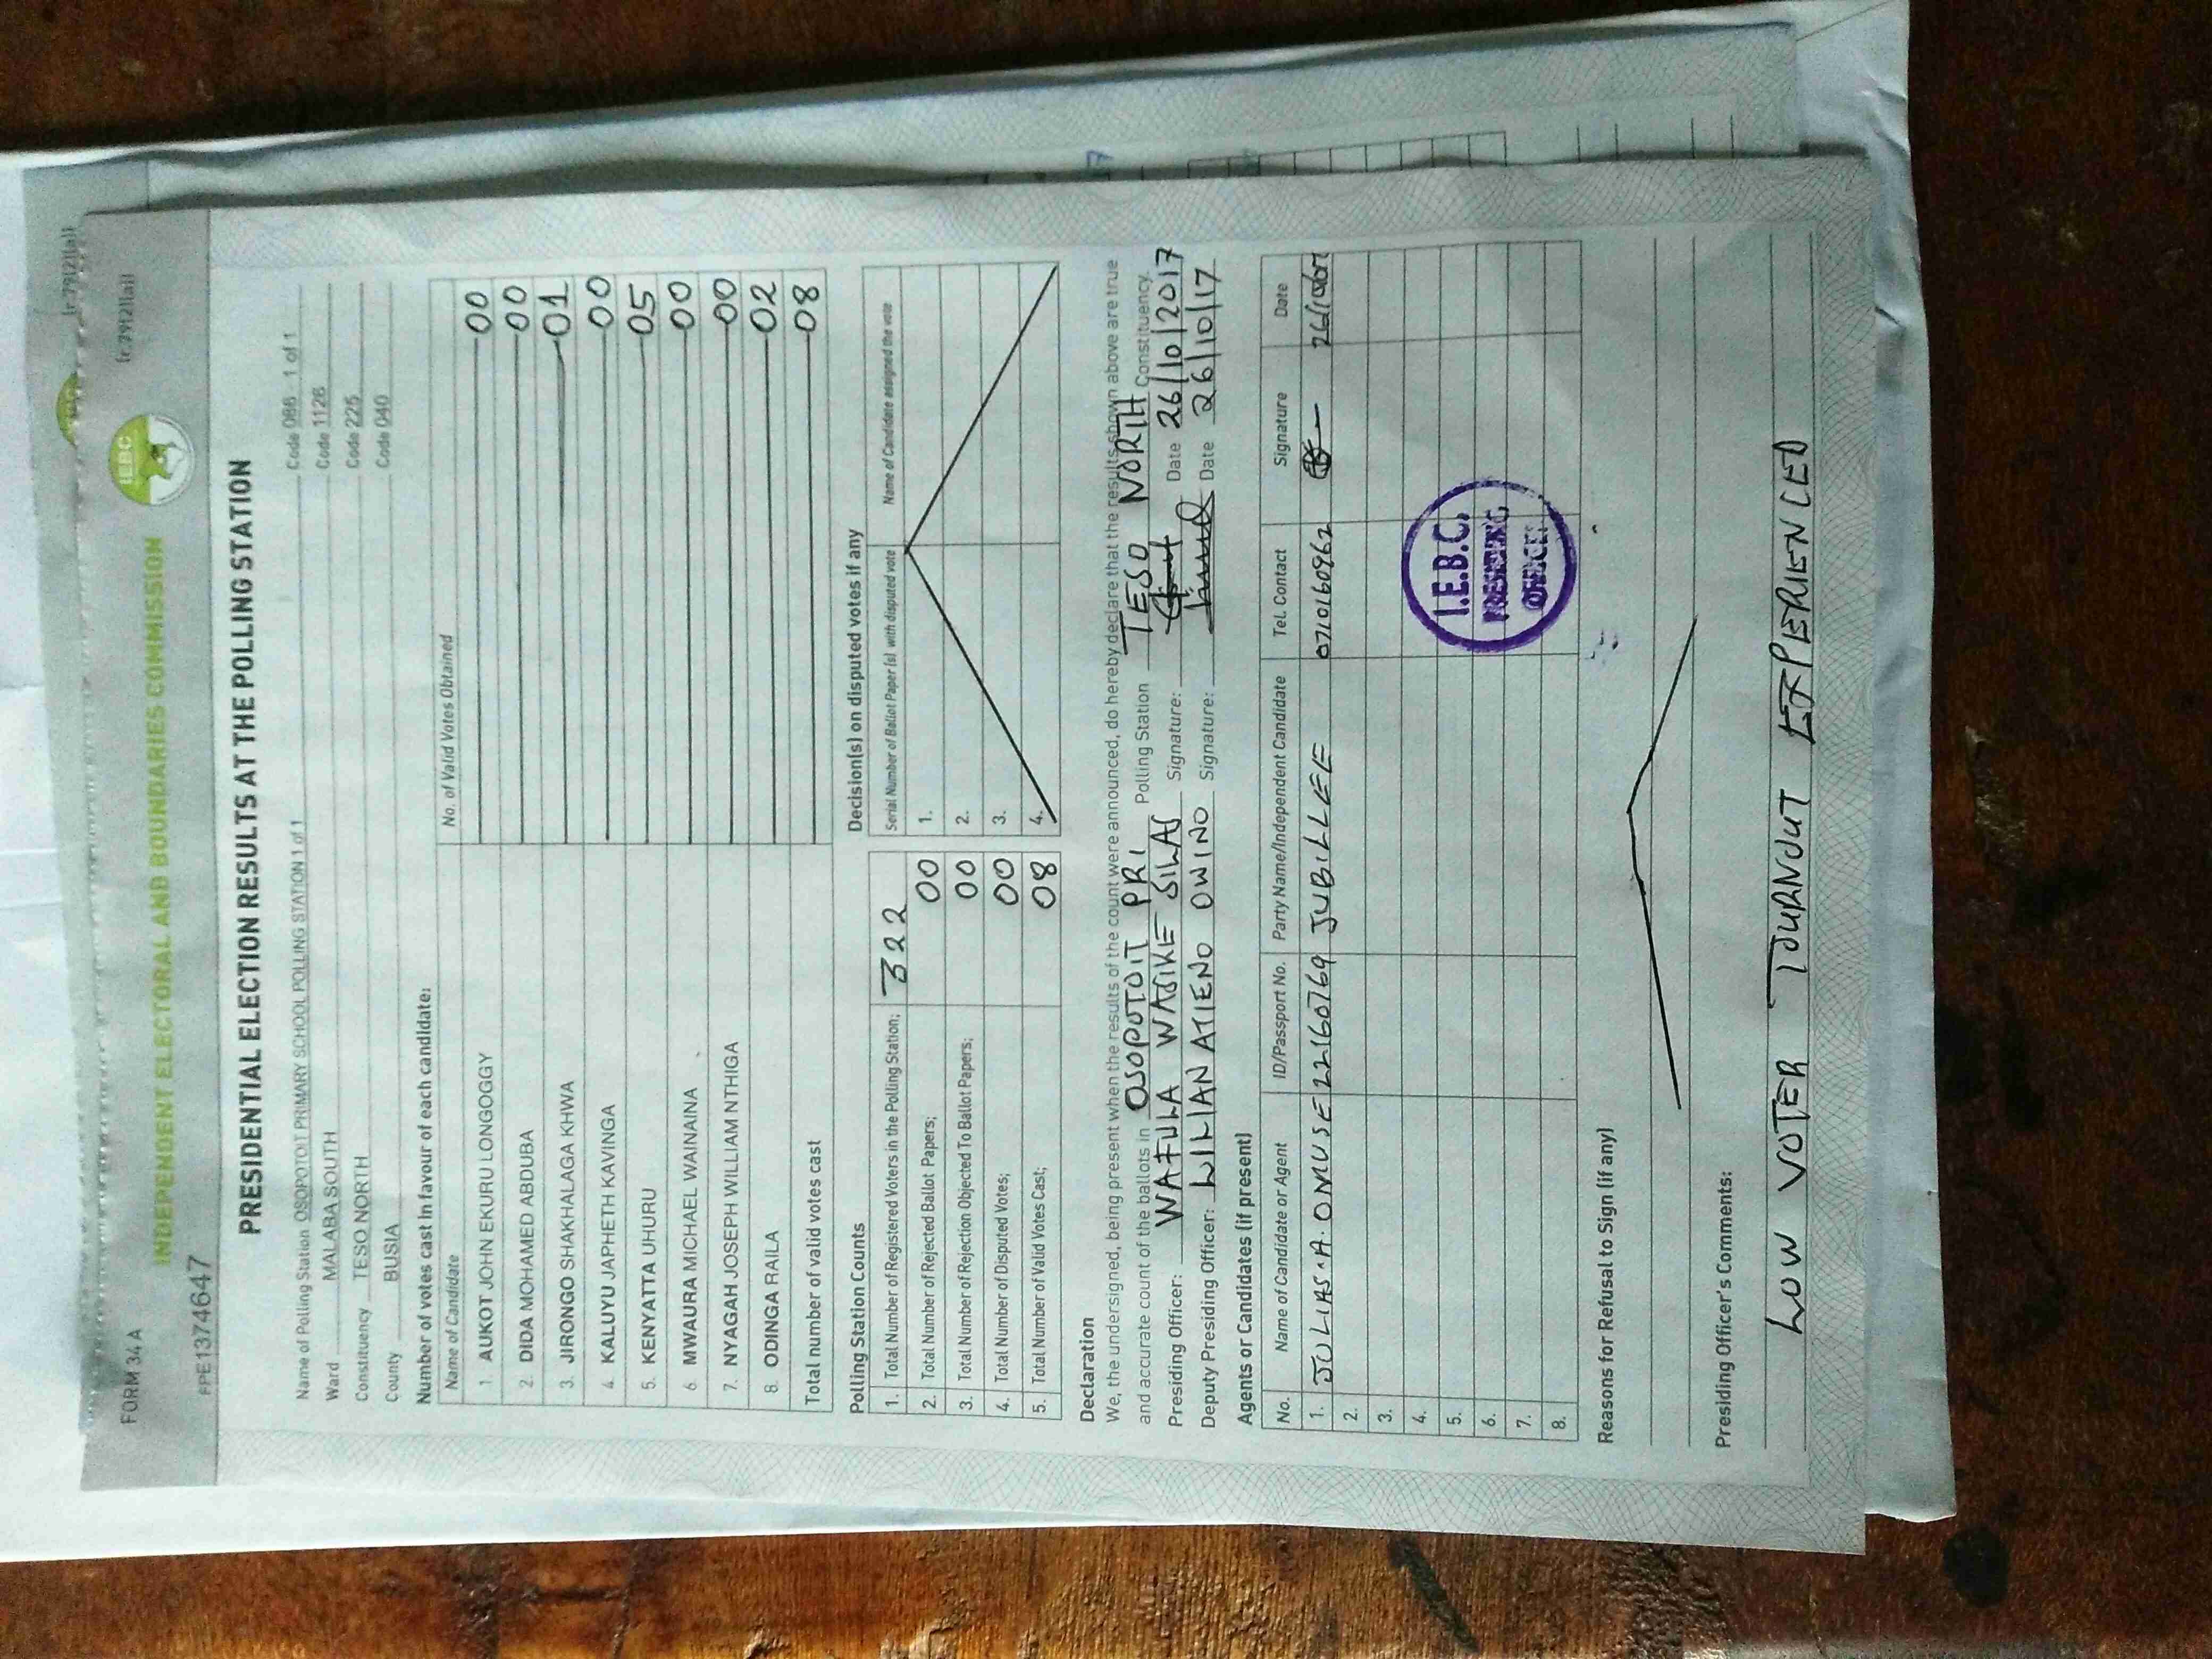 (r 79(2)(a))
FORM 34 A
(r 79(2)(a))
IEBC
INDEPENDENT ELECTORAL AND BOUNDARIES COMMISSION
PPE1374647
PRESIDENTIAL ELECTION RESULTS AT THE POLLING STATION
Name of Polling Station OSOPOTOIT PRIMARY SCHOOL POLLING STATION 1 of 1 Code 086 1 of 1
Ward MALABA SOUTH Code 1126
Constituency TESO NORTH Code 225
County BUSIA Code 040
Number of votes cast in favour of each candidate:
Name of Candidate No. of Valid Votes Obtained
1. AUKOT JOHN EKURU LONGOGGY 00
2. DIDA MOHAMED ABDUBA 00
3. JIRONGO SHAKHALAGA KHWA 01
4. KALUYU JAPHETH KAVINGA 00
5. KENYATTA UHURU 05
6. MWAURA MICHAEL WAINAINA 00
7. NYAGAH JOSEPH WILLIAM NTHIGA 00
8. ODINGA RAILA 02
Total number of valid votes cast 08
Polling Station Counts
1. Total Number of Registered Voters in the Polling Station; 322
2. Total Number of Rejected Ballot Papers; 00
3. Total Number of Rejection Objected To Ballot Papers; 00
4. Total Number of Disputed Votes; 00
5. Total Number of Valid Votes Cast; 08
Decision(s) on disputed votes if any
Serial Number of Ballot Paper (s) with disputed vote Name of Candidate assigned the vote
1.
2.
3.
4.
Declaration
We, the undersigned, being present when the results of the count were announced, do hereby declare that the results shown above are true
and accurate count of the ballots in OSOPOTOIT PRI Polling Station TESO NORTH Constituency.
Presiding Officer: WAFULA WASIKE SILAS Signature: Date 26/10/2017
Deputy Presiding Officer: LILIAN ATIENO OWINO Signature: Date 26/10/17
Agents or Candidates (if present)
No. Name of Candidate or Agent ID/Passport No. Party Name/Independent Candidate Tel. Contact Signature Date
1. JULIAS.A.OMUSE 22160769 JUBILLEE 0710160962
2.
3.
4.
5.
6.
7.
8.
I.E.B.C.
PRESIDING
OFFICER
Reasons for Refusal to Sign (if any)
Presiding Officer's Comments:
LOW VOTER TOURNOUT EXPERIENCED